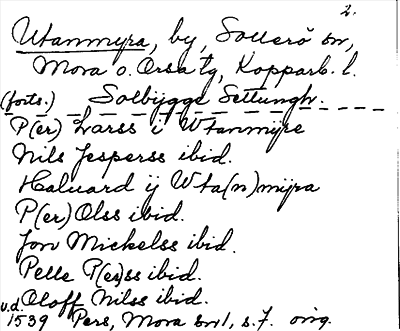 2.
Utanmyra, by, Sollerö sn,
Mora o. Orsa tg, Kopparb. l.
(forts.) Solbÿgge Settungh.
P(er) Larss i Wtanmÿre
Nils Jesperss ibid.
Haluard ÿ Wta(n)mÿra
P(er) Olss ibid.
Jon Mickelss ibid.
Pelle P(er)ss ibid.
u.d. Oloff Nilss ibid.
1539 Pers, Mora snl, s. 7. orig.